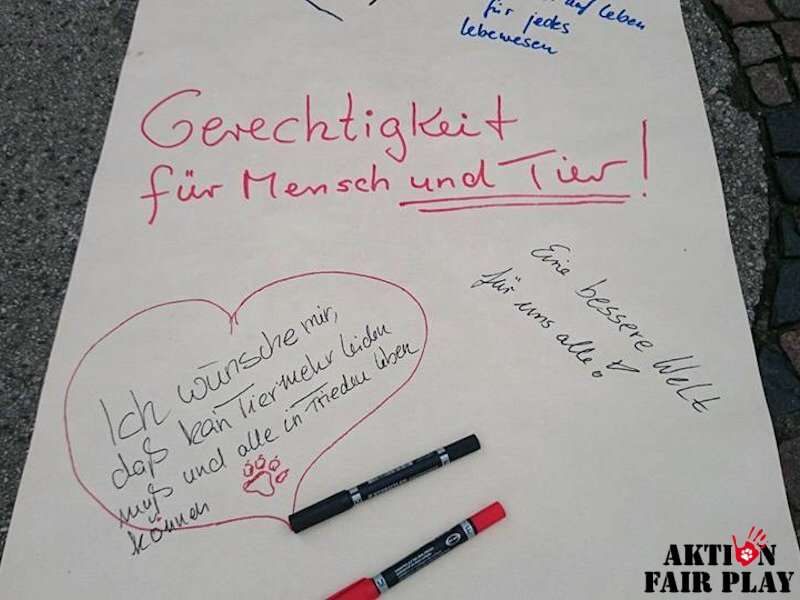 auf Leben
für jedes
lebewesen
Gerechtigkeit
für Mensch und Tier!
Eine bessere Welt
für uns alle!
Ich wünsche mir,
daß kein Tier mehr leiden
muß und alle in Frieden leben
können
AKTION
FAIR PLAY